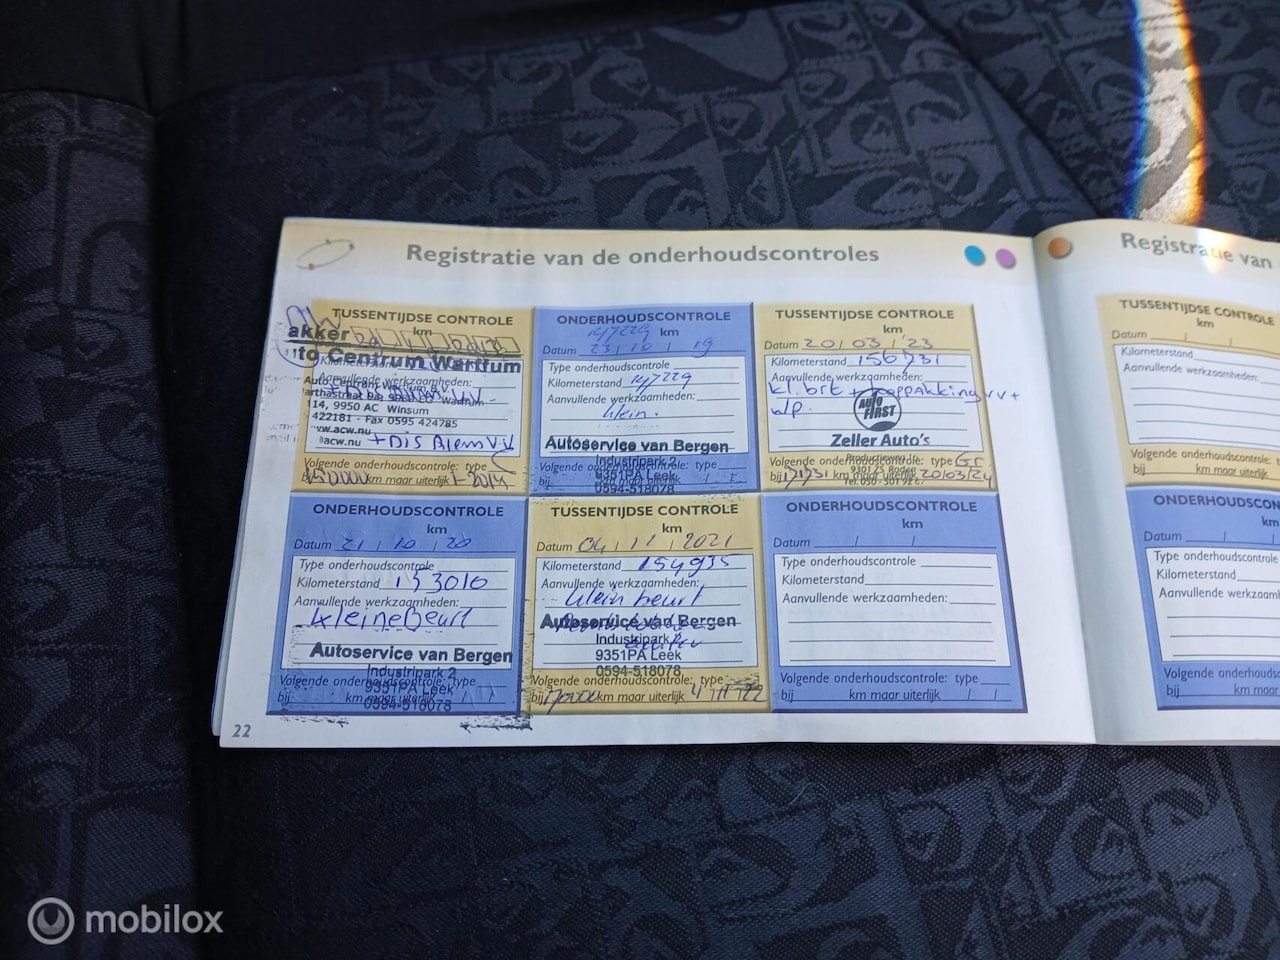 Registratie van de onderhoudscontroles
TUSSENTIJDSE CONTROLE
km
akker
to Centrum Warffum
Kilometerstand
Aanvullende werkzaamheden:
114, 9950 AC Winsum
422181 - Fax 0595 424785
vw.acw.nu
@acw.nu + Dis
Volgende onderhoudscontrole: type
bij km maar uiterlijk
ONDERHOUDSCONTROLE
147229 km
Datum 23 / 10 / 19
Type onderhoudscontrole
Kilometerstand 147229
Aanvullende werkzaamheden:
klein.
Autoservice van Bergen
Industripark 2
Volgende onderhoudscontrole: type
9351PA Leek
bij km maar uiterlijk / /
0594-518078
TUSSENTIJDSE CONTROLE
km
Datum 20 / 03 / '23
Kilometerstand 156731
Aanvullende werkzaamheden:
kl. brt +
auto
FIRST
Zeller Auto's
Volgende onderhoudscontrole: type Gr
9301 ZS Roden
bij km maar uiterlijk 20/03/24
ONDERHOUDSCONTROLE
km
Datum 21 / 10 / 20
Type onderhoudscontrole
Kilometerstand 153010
Aanvullende werkzaamheden:
kleine Beurt
Autoservice van Bergen
Industripark 2
Volgende onderhoudscontrole: type
9351PA Leek
bij km maar uiterlijk / /
0594-518078
TUSSENTIJDSE CONTROLE
km
Datum 04 / 11 / 2021
Kilometerstand 154935
Aanvullende werkzaamheden:
klein beurt
Autoservice van Bergen
Industripark 2
9351PA Leek
0594-518078
Volgende onderhoudscontrole: type
bij km maar uiterlijk 4 / 11 / 22
ONDERHOUDSCONTROLE
km
Datum / /
Type onderhoudscontrole
Kilometerstand
Aanvullende werkzaamheden:
Volgende onderhoudscontrole: type
bij km maar uiterlijk / /
22
Registratie van
TUSSENTIJDSE CONTROLE
km
Datum / /
Kilometerstand
Aanvullende werkzaamheden:
Volgende onderhoudscontrole: type
bij km maar uiterlijk
ONDERHOUDSCON
km
Datum / /
Type onderhoudscontrole
Kilometerstand
Aanvullende werkzaamheden:
Volgende onderhoudscontrole:
bij km maar
mobilox